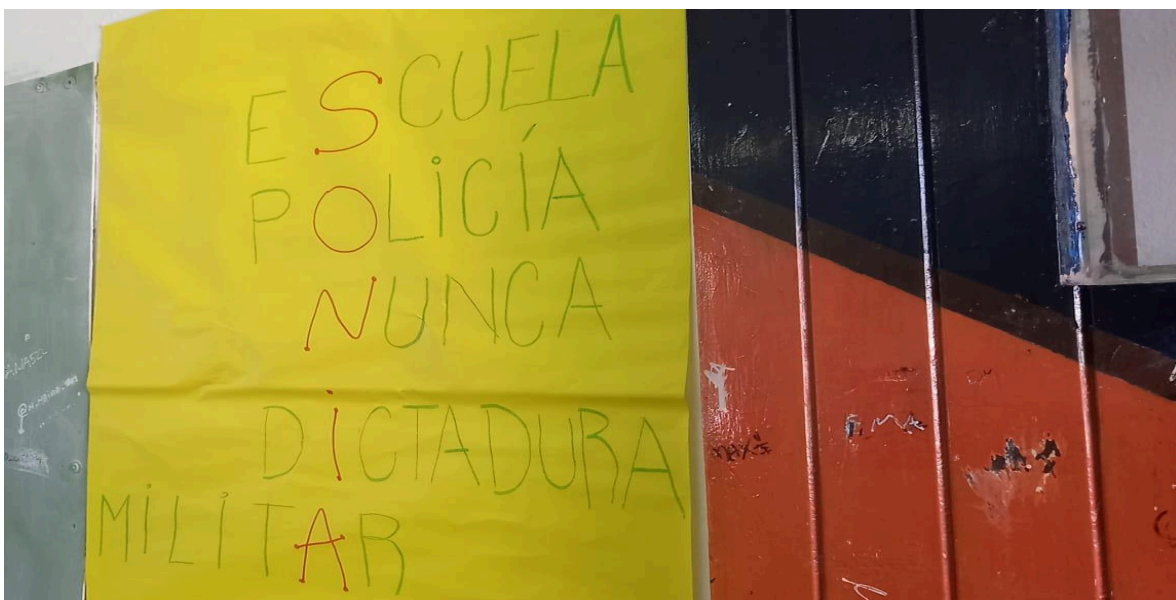 ESCUELA
POLiCÍA
NUNCA
DiCTADURA
MiLiTAR